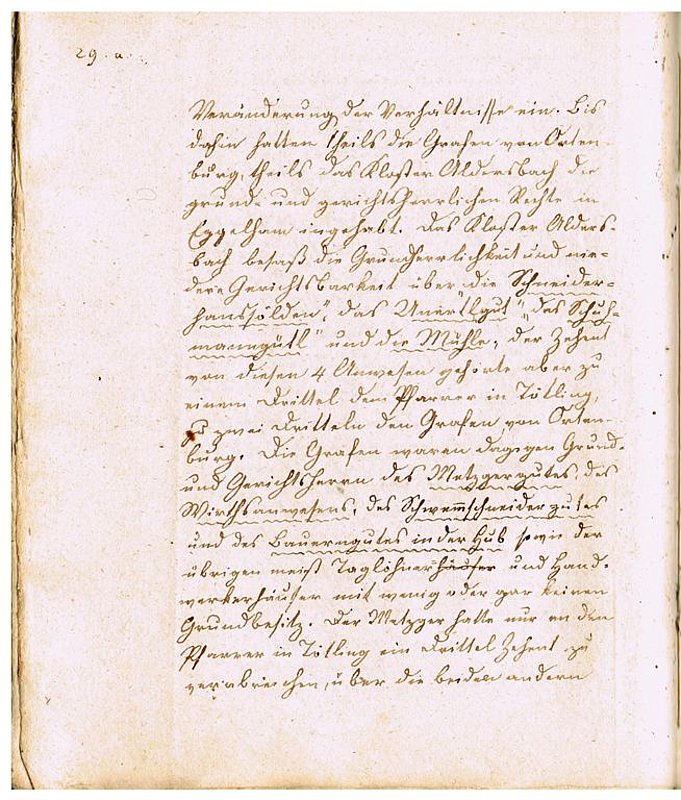 29. a.
Veränderung der Verhältnisse ein. Bis
dahin hatten theils die Grafen von Orten-
burg, theils das Kloster Aldersbach die
grund- und gerichtsherrlichen Rechte in
Egglham ingehabt. Das Kloster Alders-
bach besaß die Grundherrlichkeit und nie-
dere Gerichtsbarkeit über die Schneider-
hanssölden", das Unertlgut", "das Schuh-
manngütl" und die Mühle, der Zehent
von diesen 4 Anwesen gehörte aber zu
einem Drittel dem Pfarrer in Tötling,
zu zwei Dritteln den Grafen von Orten-
burg. Die Grafen waren dagegen Grund-
und Gerichtsherrn des Metzgergutes, des
Wirthsanwesens, des Schwemschneidergutes
und des Bauerngutes in der Hub sowie der
übrigen meist Taglöhnerhäuser und Hand-
werkerhäuser mit wenig oder gar keinen
Grundbesitz. Der Metzger hatte nur an den
Pfarrer in Tötling ein Drittel Zehent zu
verabreichen, über die beiden andern